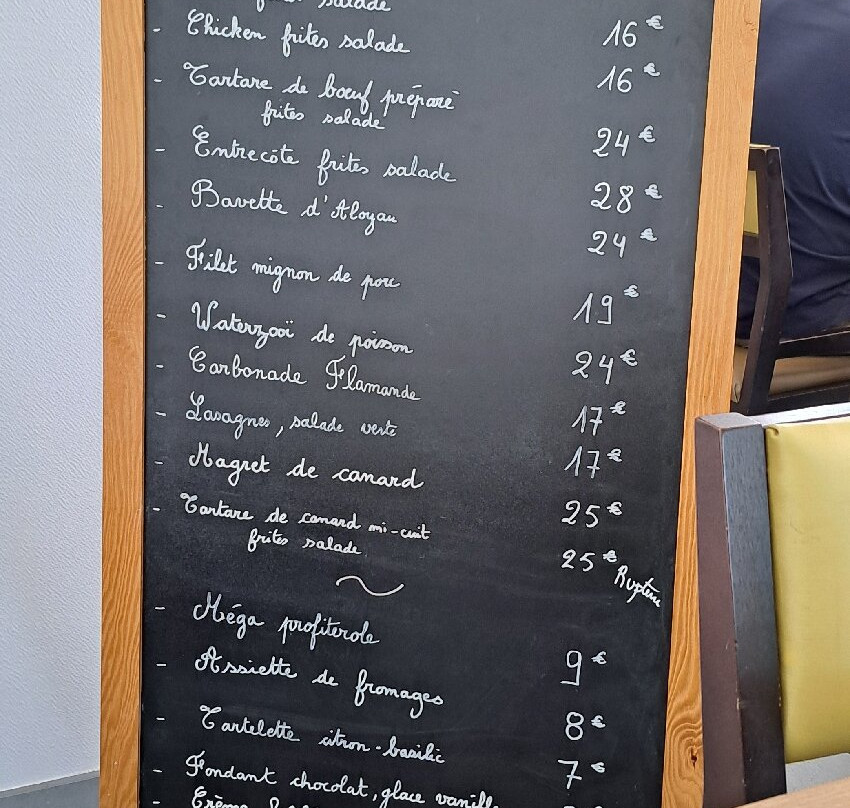 salade 16 €
- Chicken frites salade 16 €
- Tartare de bœuf préparé
frites salade 24 €
- Entrecôte frites salade 28 €
- Bavette d'Aloyau 24 €
- Filet mignon de porc 19 €
- Waterzooï de poisson 24 €
- Carbonade Flamande 17 €
- Lasagnes, salade verte 17 €
- Magret de canard 25 €
- Tartare de canard mi-cuit
frites salade 25 € Rupture
- Méga profiterole 9 €
- Assiette de fromages 8 €
- Tartelette citron-basilic 7 €
- Fondant chocolat, glace vanille
- Crème